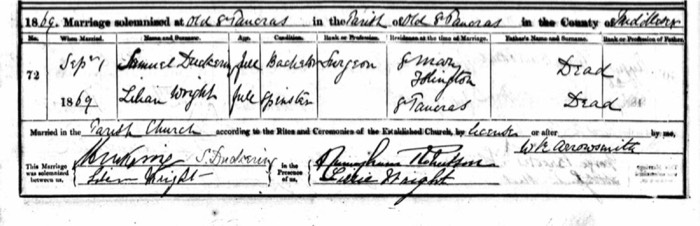 1869. Marriage solemnized at Old St Pancras in the Parish of Old St Pancras in the County of Middlesex
No. When Married. Name and Surname. Age. Condition. Rank or Profession. Residence at the time of Marriage. Father's Name and Surname. Rank or Profession of Father.
72 Sept 1 1869 Samuel Duckering full Bachelor Surgeon St Mary Islington Dead
Lilian Wright full Spinster St Pancras Dead
Married in the Parish Church according to the Rites and Ceremonies of the Established Church, by License or after by me,
W R Arrowsmith
This Marriage was solemnized between us, S. Duckering In the Presence of us, Robertson
Lilian Wright Lizzie Wright